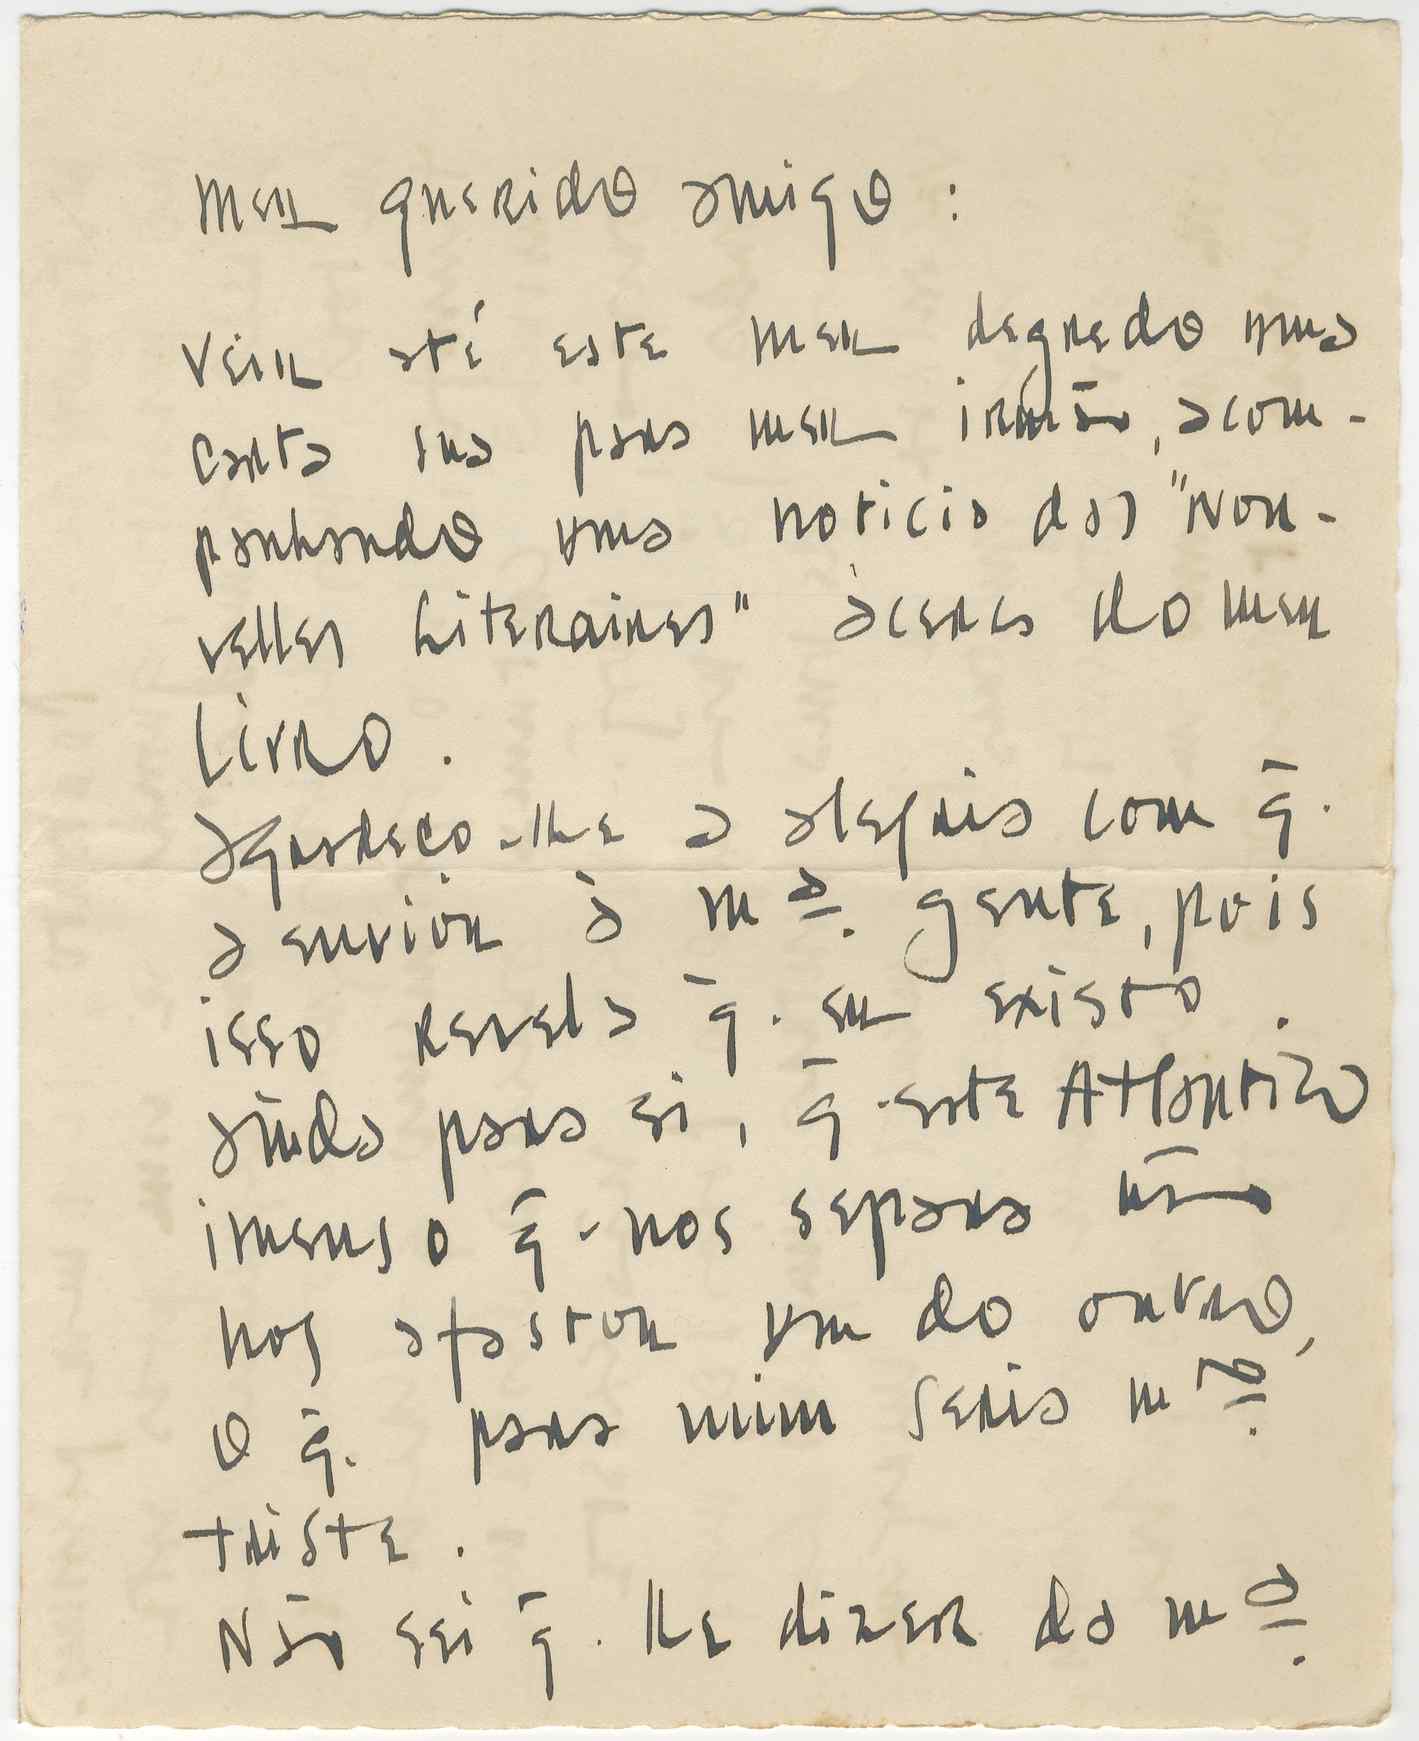 Meu querido amigo:
Veiu até este meu degredo uma
carta sua para meu irmão, acom-
panhando uma noticia das "Nou-
velles Literaires" àcerca do meu
livro.
Agradeço-lhe a alegria com q̄.
a enviou à mª. gente, pois
isso revela q̄. eu existo
ainda para si, q̄. este Atlantico
imenso q̄. nos separa não
nos afastou um do outro,
o q̄. para mim seria mᵗº.
triste.
Não sei q̄. lhe dizer da mª.